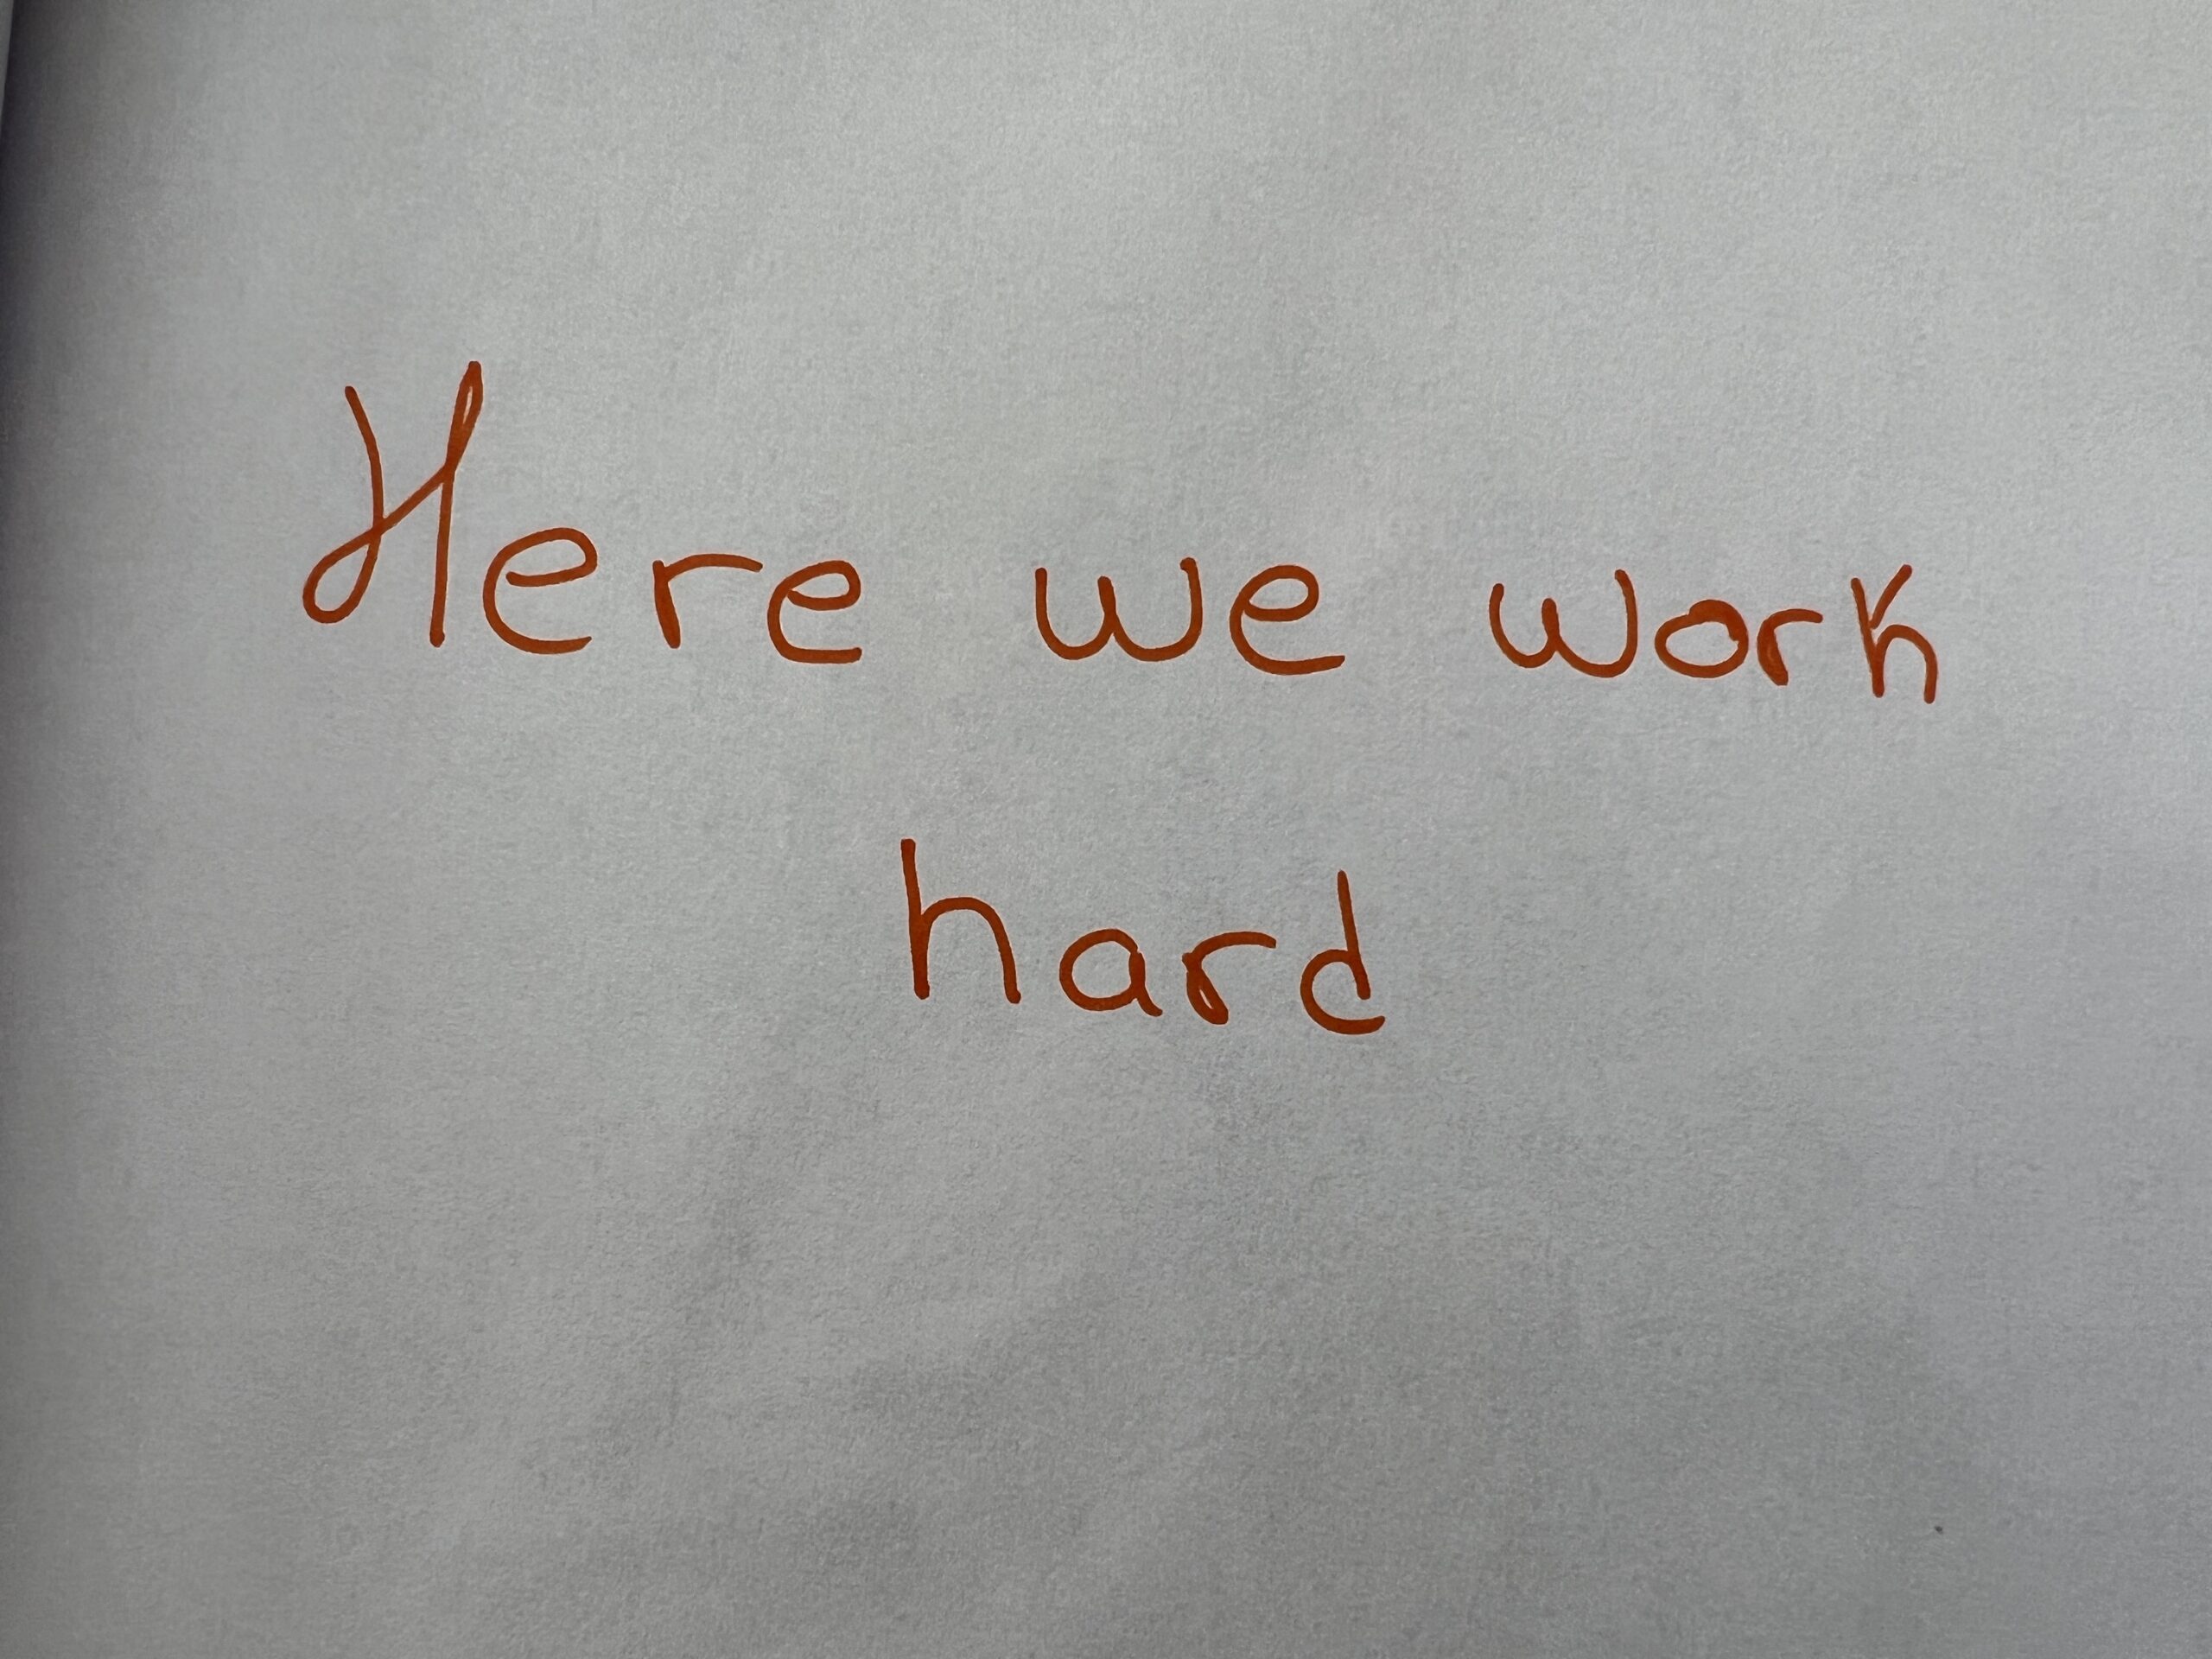 Here we work
hard